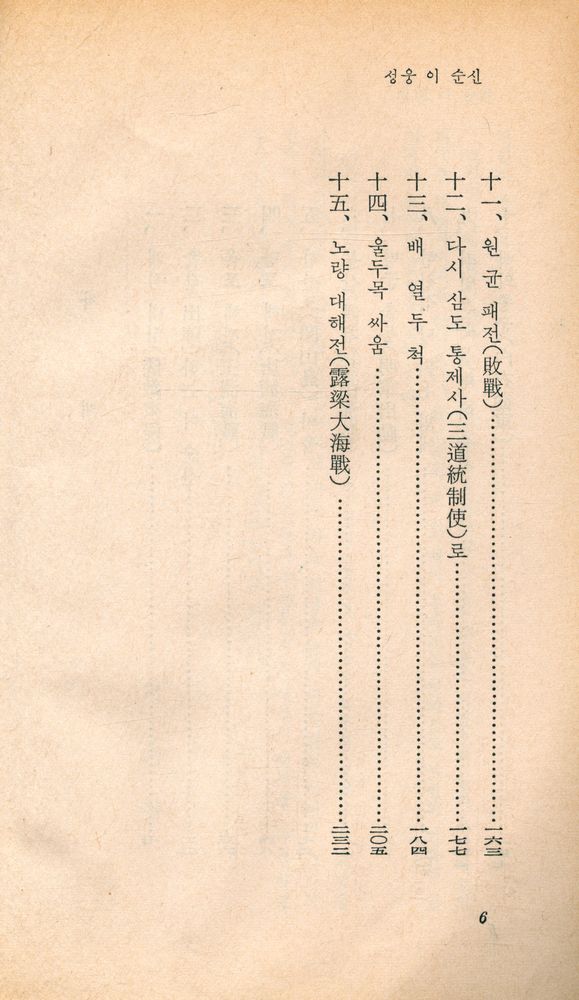 성웅 이 순신
十一、원 균 패전(敗戰)………一六三
十二、다시 삼도 통제사(三道統制使)로………一七七
十三、배 열 두 척………一八四
十四、울두목 싸움………二〇五
十五、노량 대해전(露梁大海戰)………二三二
6